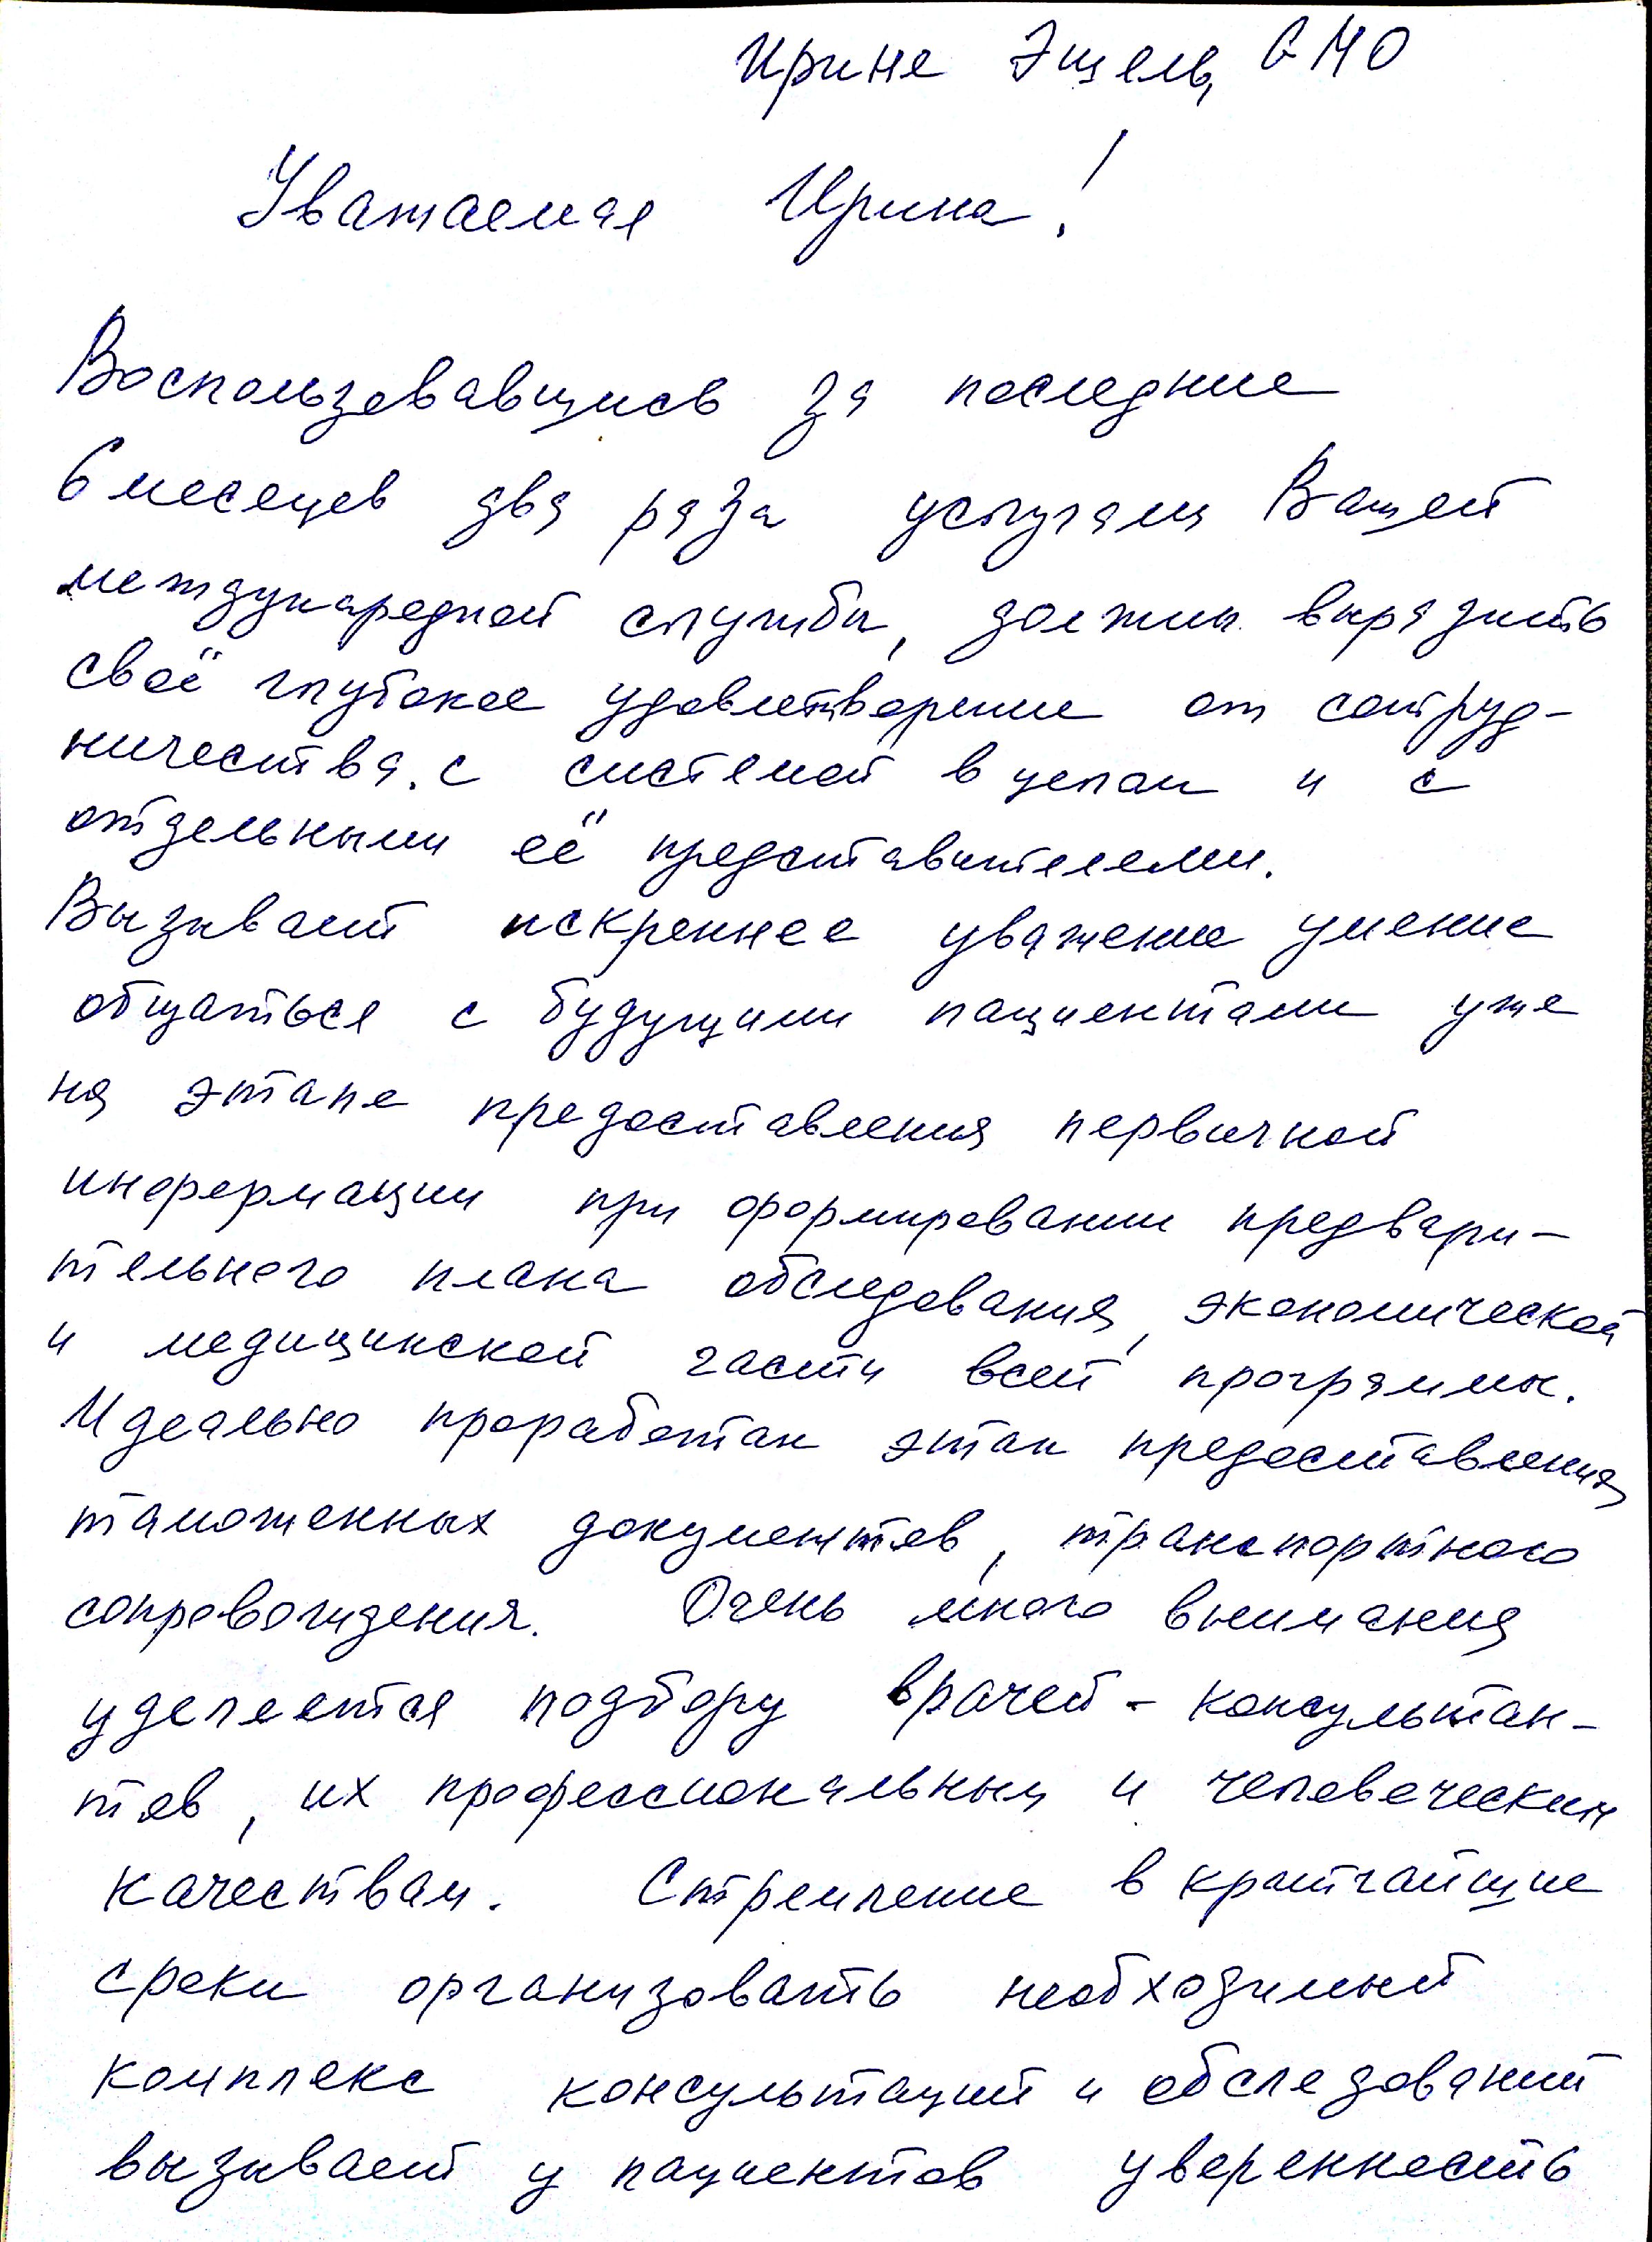 Ирине Эшель, СМО
Уважаемая Ирина!
Воспользовавшись за последние
6 месяцев два раза услугами Вашей
международной службы, должны выразить
своё глубокое удовлетворение от сотруд-
ничества с системой в целом и с
отдельными её представителями.
Вызывает искреннее уважение умение
общаться с будущими пациентами уже
на этапе предоставления первичной
информации при формировании предвари-
тельного плана обследования, экономической
и медицинской части всей программы.
Идеально проработан этап предоставления
таможенных документов, транспортного
сопровождения. Очень много внимания
уделяется подбору врачей-консультан-
тов, их профессиональным и человеческим
качествам. Стремление в кратчайшие
сроки организовать необходимый
комплекс консультаций и обследований
вызывает у пациентов уверенность